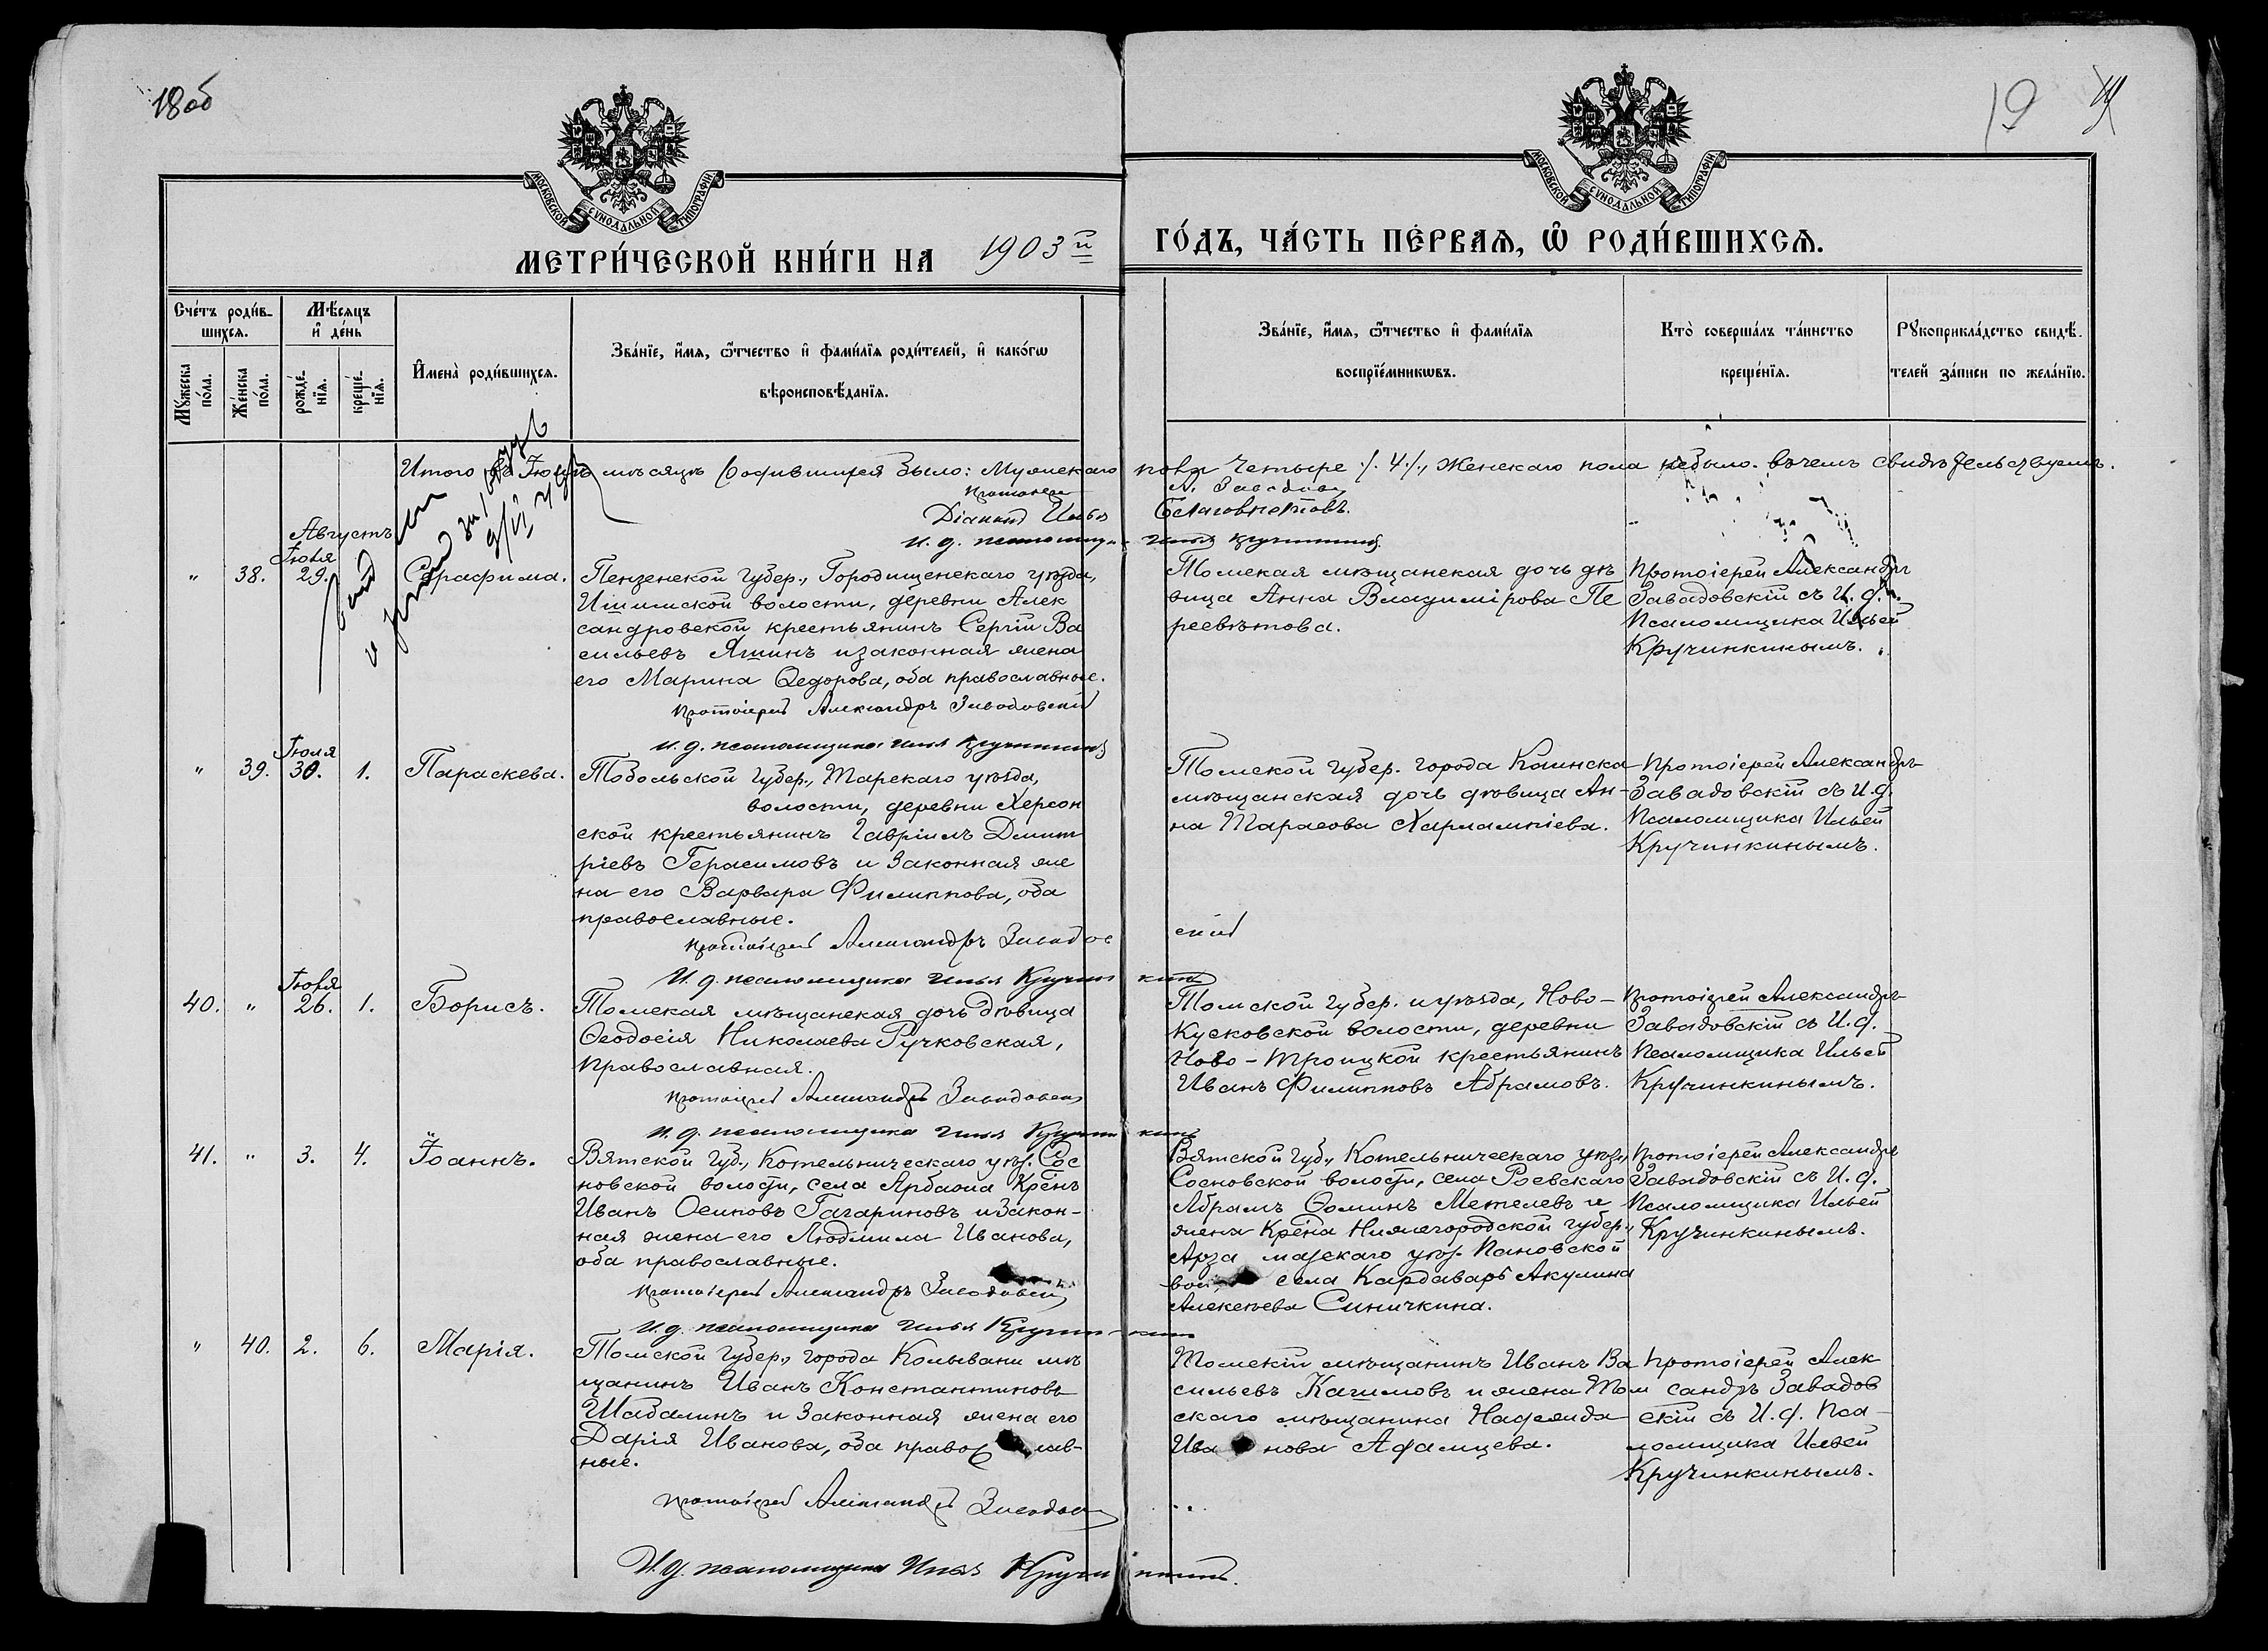 18 об
19
МОСКОВСКОЙ СѴНОДАЛЬНОЙ ТИПОГРАФІИ
МОСКОВСКОЙ СѴНОДАЛЬНОЙ ТИПОГРАФІИ
МЕТРИ́ЧЕСКОЙ КНИ́ГИ НА 1903й ГО́ДЪ, ЧА́СТЬ ПЕ́РВАѦ, Ѡ҆ РОДИ́ВШИХСѦ.
Сче́тъ роди́в-
шихсѧ.
Мꙋ́жеска
по́ла.
Же́нска
по́ла.
Мѣ́сѧцъ
и҆ де́нь
рожде́-
нїѧ.
креще́-
нїѧ.
И҆мена̀ роди́вшихсѧ.
Зва́нїе, и҆́мѧ, ѻ҆́тчество и҆ фамѝлїѧ роди́телей, и҆ како́гѡ
вѣроисповѣ́данїѧ.
Зва́нїе, и҆́мѧ, ѻ҆́тчество и҆ фами́лїѧ
воспрїе́мникѡвъ.
Кто̀ соверша́лъ та́инство
креще́нїѧ.
Рꙋкоприкла́дство свидѣ́-
телей за́писи по жела́нїю.
Итого въ Іюлѣ мѣсяцѣ родившихся было: Мужскаго пола четыре ./. 4 ./., женскаго пола небыло. въ чемъ свидѣтельствуемъ.
Діаконъ Илья Благовѣстовъ.
И. д. псаломщика Илья Кручинкинъ
Августъ
" 38. Іюля 29. Серафима.
Пензенской губер., Городищенскаго уѣзда,
волости, деревни Алек
сандровской крестьянинъ Сергій Ва
сильевъ Яшинъ и законная жена
его Марина Ѳедорова, оба православные.
Протоіерей Александръ Завадовскій
И. д. псаломщика Илья Кручинкинъ
Томская мѣщанская дочь дѣ
вица Анна Владимірова Пе
ревѣтова.
Протоіерей Александръ
Завадовскій съ И. д.
Псаломщика Ильей
Кручинкинымъ.
" 39. Іюля 30. 1. Параскева.
Тобольской губер., Тарскаго уѣзда,
волости, деревни Херсон
ской крестьянинъ Гавріилъ Дмит
ріевъ Герасимовъ и законная же
на его Варвара Филиппова, оба
православные.
Протоіерей Александръ Завадовскій
И. д. псаломщика Илья Кручинкинъ
Томской губер. города Каинска
мѣщанская дочь дѣвица Ан-
на Тарасова Харлампіева.
Протоіерей Александръ
Завадовскій съ И. д.
Псаломщика Ильей
Кручинкинымъ.
40. " Іюля 26. 1. Борисъ.
Томская мѣщанская дочь дѣвица
Ѳеодосія Николаева Ручковская,
православная.
Протоіерей Александръ Завадовскій
И. д. псаломщика Илья Кручинкинъ
Томской губер. и уѣзда, Ново-
Кусковской волости, деревни
Ново-Троицкой крестьянинъ
Иванъ Филипповъ Абрамовъ.
Протоіерей Александръ
Завадовскій съ И. д.
Псаломщика Ильей
Кручинкинымъ.
41. " 3. 4. Іоаннъ.
Вятской губ., Котельническаго уѣз. Сос
новской волости, села Арбажа Крѣнъ
Иванъ Осиповъ Гагариновъ и закон-
ная жена его Людмила Иванова,
оба православные.
Протоіерей Александръ Завадовскій
И. д. псаломщика Илья Кручинкинъ
Вятской губ., Котельническаго уѣз.,
Сосновской волости, села Роевскаго
Абрамъ Ѳоминъ Метелевъ и
жена Крѣна Нижегородской губер.,
Арза масскаго уѣз. Пановской
вол., села Кардаваръ Акулина
Алексѣева Синичкина.
Протоіерей Александръ
Завадовскій съ И. д.
Псаломщика Ильей
Кручинкинымъ.
" 40. 2. 6. Марія.
Томской губер., города Колывани мѣ
щанинъ Иванъ Константиновъ
Шабалинъ и законная жена его
Дарія Иванова, оба православ-
ные.
Протоіерей Александръ Завадовскій
И. д. псаломщика Илья Кручинкинъ.
Томскій мѣщанинъ Иванъ Ва
сильевъ Качимовъ и жена Том
скаго мѣщанина Надежда
Ива нова Адамцева.
Протоіерей Алек
сандръ Завадов
скій съ И. д. Пса-
ломщика Ильей
Кручинкинымъ.